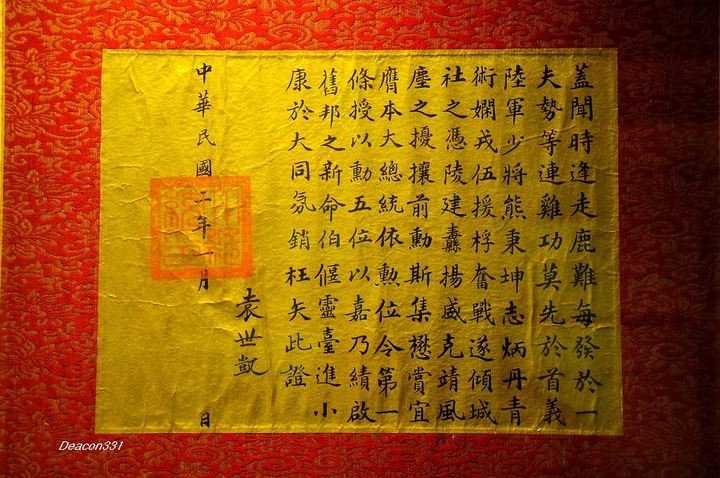 蓋聞時逢走鹿難每發於一
夫勢等連雞功莫先於首義
陸軍少將熊秉坤志炳丹青
術嫻戎伍援桴奮戰遂傾城
社之憑陵建纛揚威克靖風
塵之擾攘前勳斯集懋賞宜
膺本大總統依勲位令第一
條授以勳五位以嘉乃績啟
舊邦之新命伯偃靈臺進小
康於大同氛銷枉矢此證
袁世凱
中華民國二年一月 日
Deacon331